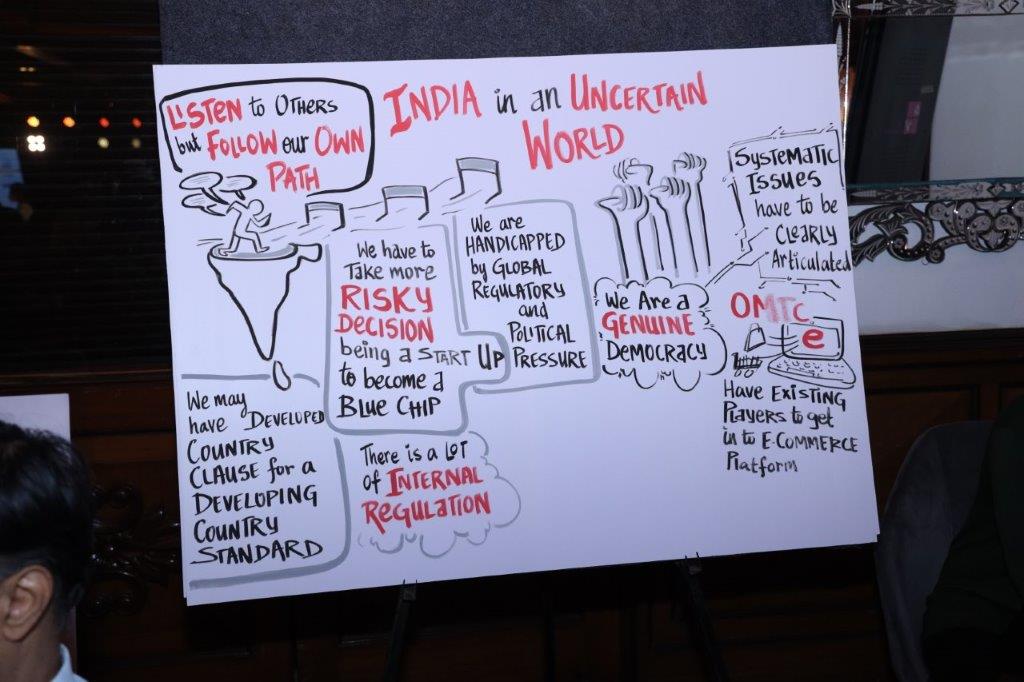 INDIA in an UNCERTAIN
WORLD
LISTEN to OTHERS
but FOLLOW our OWN
PATH
We have to
Take more
RISKY
DECISION
being a START UP
to become a
BLUE CHIP
We are
HANDICAPPED
by GLOBAL
REGULATORY
and
POLITICAL
PRESSURE
We Are a
GENUINE
DEMOCRACY
SYSTEMATIC
ISSUES
have to be
CLEARLY
Articulated
OMTC
e
HAVE EXISTING
Players to get
in to E-COMMERCE
Platform
We may
have DEVELOPED
COUNTRY
CLAUSE for a
DEVELOPING
COUNTRY
STANDARD
There is a LOT
of INTERNAL
REGULATION